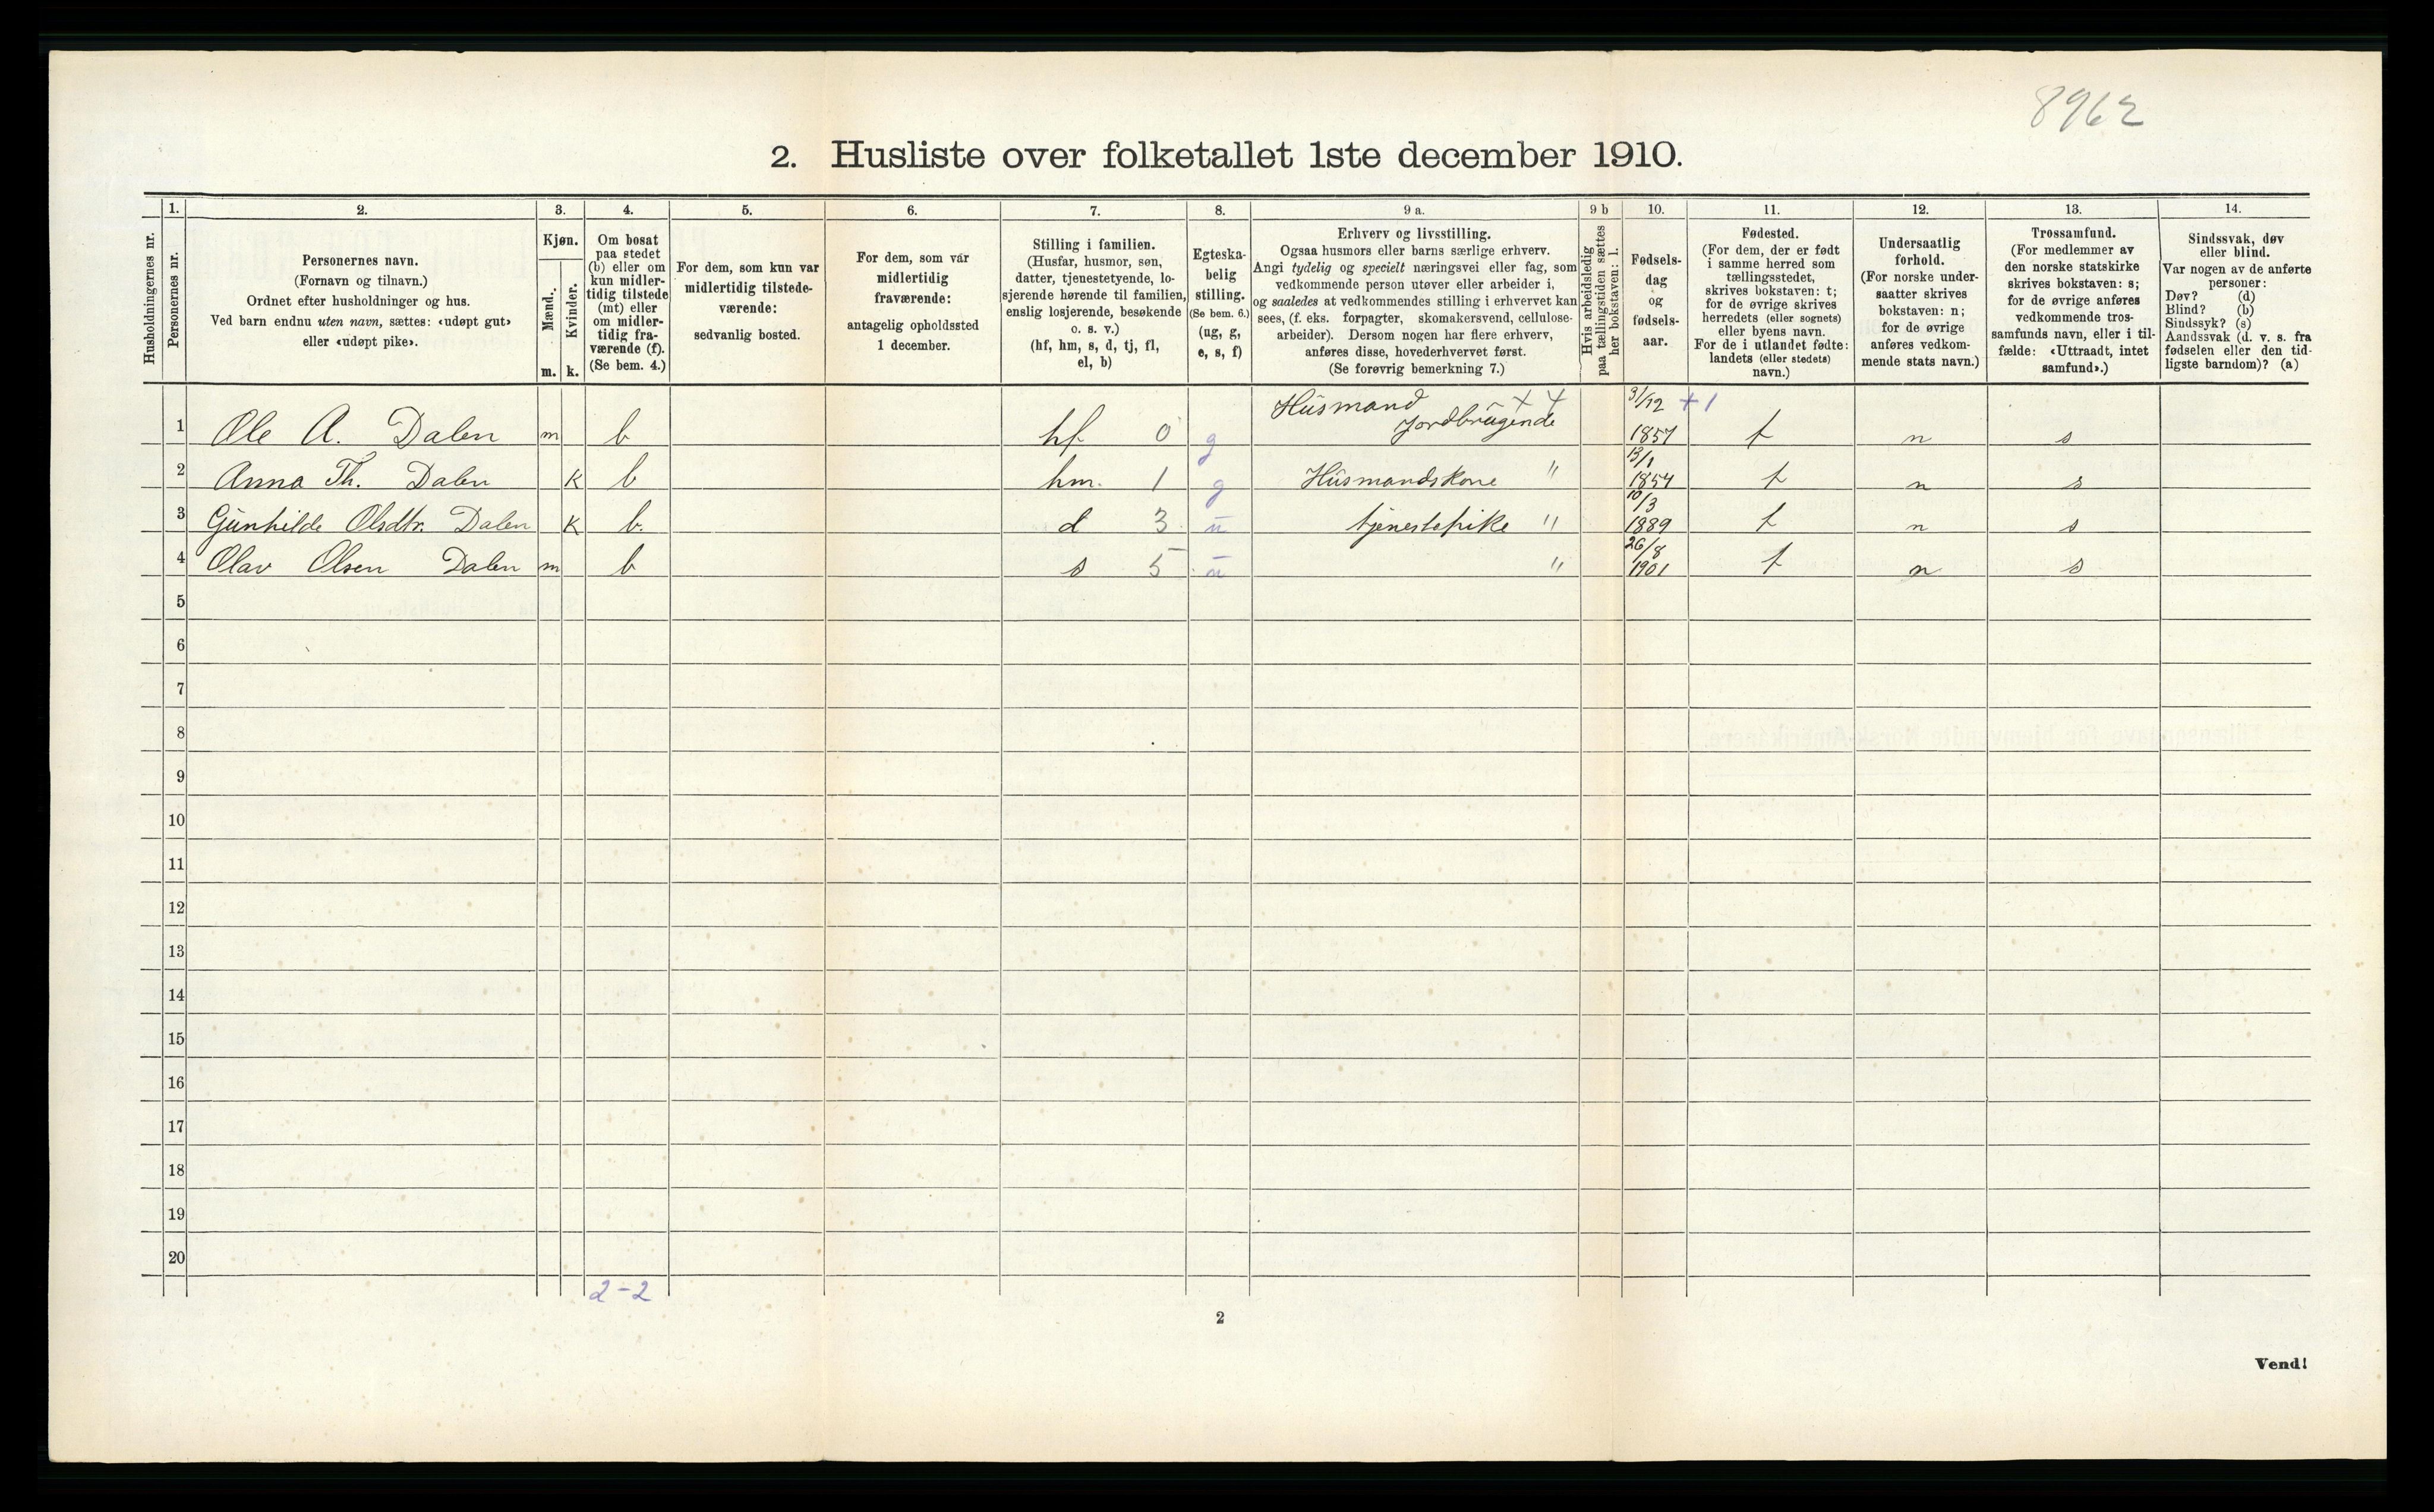 8962
2. Husliste over folketallet 1ste december 1910.
Husholdningernes nr.
1.
Personernes nr.
2.
Personernes navn.
(Fornavn og tilnavn.)
Ordnet efter husholdninger og hus.
Ved barn endnu uten navn, sættes: «udøpt gut»
eller «udøpt pike».
3.
Kjøn.
Mænd.
Kvinder.
m. k.
4.
Om bosat
paa stedet
(b) eller om
kun midler-
tidig tilstede
(mt) eller
om midler-
tidig fra-
værende (f).
(Se bem. 4.)
5.
For dem, som kun var
midlertidig tilstede-
værende:
sedvanlig bosted.
6.
For dem, som var
midlertidig
fraværende:
antagelig opholdssted
1 december.
7.
Stilling i familien.
(Husfar, husmor, søn,
datter, tjenestetyende, lo-
sjerende hørende til familien,
enslig losjerende, besøkende
o. s. v.)
(hf, hm, s, d, tj, fl,
el, b)
8.
Egteska-
belig
stilling.
(Se bem. 6.)
(ug, g,
e, s, f)
9 a.
Erhverv og livsstilling.
Ogsaa husmors eller barns særlige erhverv.
Angi tydelig og specielt næringsvei eller fag, som
vedkommende person utøver eller arbeider i,
og saaledes at vedkommendes stilling i erhvervet kan
sees, (f. eks. forpagter, skomakersvend, cellulose-
arbeider). Dersom nogen har flere erhverv,
anføres disse, hovederhvervet først.
(Se forøvrig bemerkning 7.)
9 b
Hvis arbeidsledig
paa tællingstiden sættes
her bokstaven: l.
10.
Fødsels-
dag
og
fødsels-
aar.
11.
Fødested.
(For dem, der er født
i samme herred som
tællingsstedet,
skrives bokstaven: t;
for de øvrige skrives
herredets (eller sognets)
eller byens navn.
For de i utlandet fødte:
landets (eller stedets)
navn.)
12.
Undersaatlig
forhold.
(For norske under-
saatter skrives
bokstaven: n;
for de øvrige
anføres vedkom-
mende stats navn.)
13.
Trossamfund.
(For medlemmer av
den norske statskirke
skrives bokstaven: s;
for de øvrige anføres
vedkommende tros-
samfunds navn, eller i til-
fælde: «Uttraadt, intet
samfund».)
14.
Sindssvak, døv
eller blind.
Var nogen av de anførte
personer:
Døv? (d)
Blind? (b)
Sindssyk? (s)
Aandssvak (d. v. s. fra
fødselen eller den tid-
ligste barndom)? (a)
1 Ole A. Dalen m b hf 0 g Husmand Jordbrugende x 4 31/12 1857 +1 t n s
2 Anna Th. Dalen K b hm. 1 g Husmandskone " 13/1 1854 t n s
3 Gunhilde Olsdtr. Dalen K b. d 3 u tjenestepike " 10/3 1889 t n s
4 Olav Olsen Dalen m b s 5 u " 26/8 1901 t n s
5
6
7
8
9
10
11
12
13
14
15
16
17
18
19
20
2-2
2
Vend!